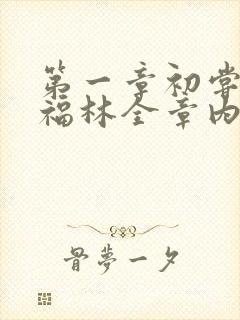 第一章初尝
福林全章内
骨夢一夕